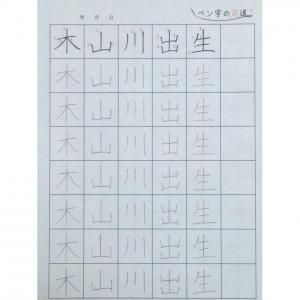 年 月 日
ペン字の花道
木 山 川 出 生
木 山 川 出 生
木 山 川 出 生
木 山 川 出 生
木 山 川 出 生
木 山 川 出 生
木 山 川 出 生
木 山 川 出 生